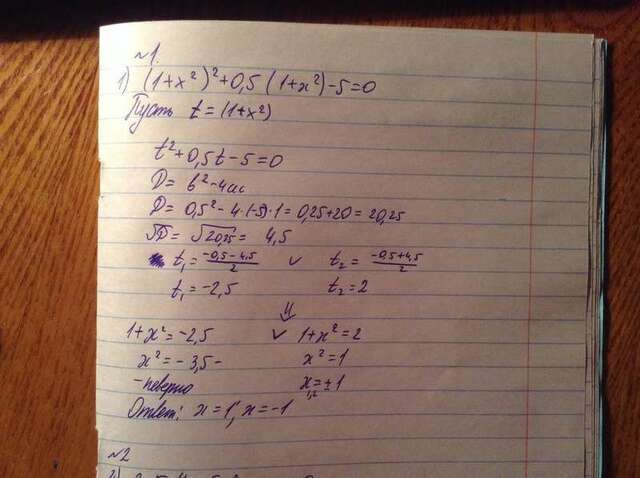 №1.
1) (1+x²)²+0,5(1+x²)-5=0
Пусть t=(1+x²)
t²+0,5t-5=0
D=b²-4ac
D=0,5²-4·(-5)·1=0,25+20=20,25
√D=√20,25=4,5
t₁=(-0,5-4,5)/2 ∨ t₂=(-0,5+4,5)/2
t₁=-2,5 t₂=2
⇓
1+x²=-2,5 ∨ 1+x²=2
x²=-3,5- x²=1
-неверно x₁,₂=±1
Ответ: x=1; x=-1
№2